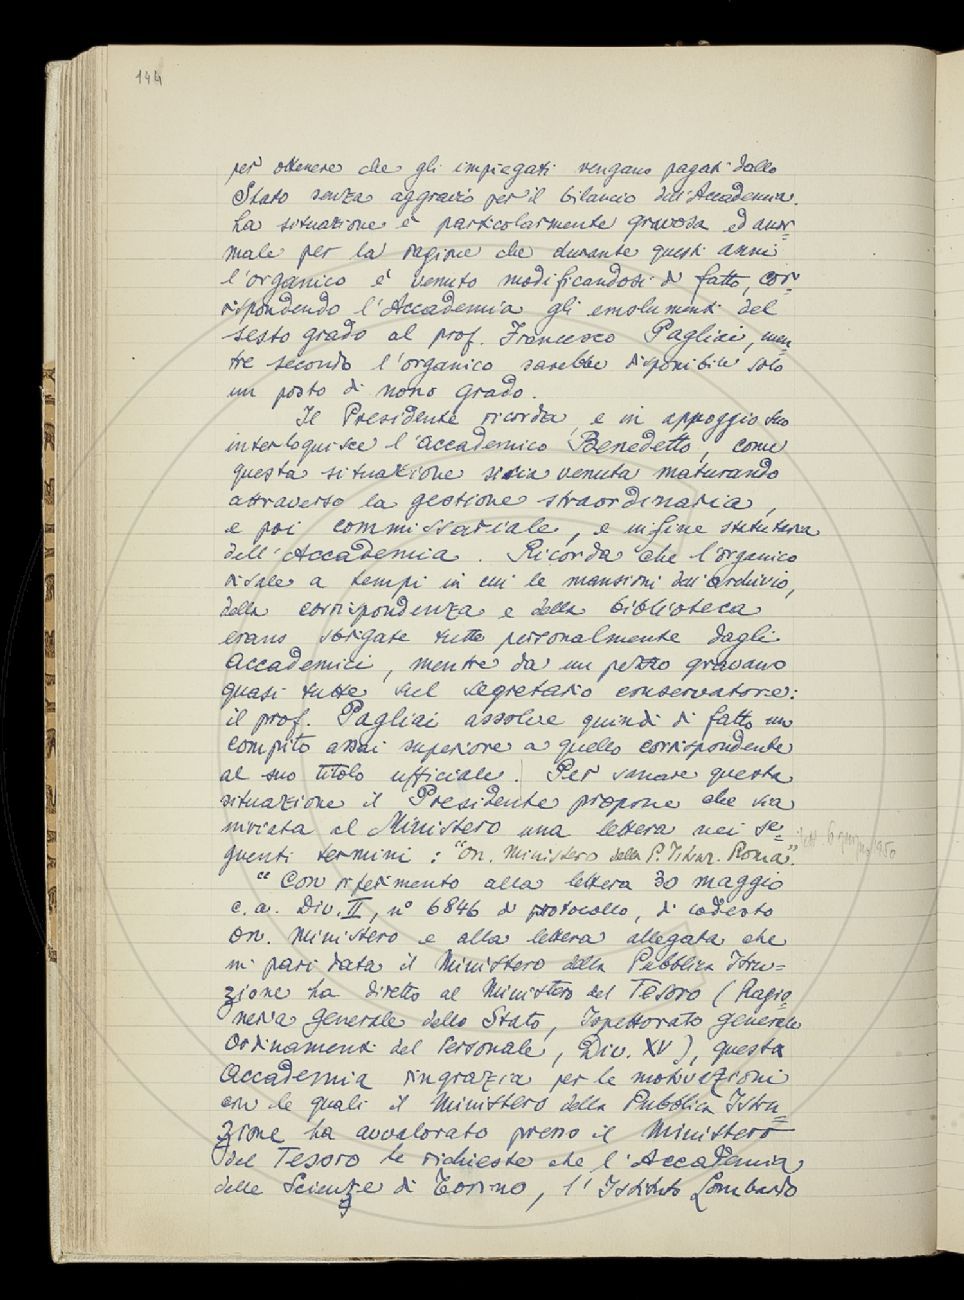 144
per ottenere che gli impiegati vengano pagati dallo
Stato senza aggravio per il bilancio dell'Accademia.
La situazione è particolarmente gravosa ed anor-
male per la ragione che durante questi anni
l'organico è venuto modificandosi di fatto, cor-
rispondendo l'Accademia gli emolumenti del
sesto grado al prof. Francesco Pagliai, men-
tre secondo l'organico sarebbe disponibile solo
un posto di nono grado.
Il Presidente ricorda, e in appoggio suo
interloquisce l'accademico Benedetto, come
questa situazione si sia venuta maturando
attraverso la gestione straordinaria,
e poi commissariale, e infine statutaria
dell'Accademia. Ricorda che l'organico
risale a tempi in cui le mansioni dell'archivio,
della corrispondenza e della biblioteca
erano sbrigate tutte personalmente dagli
accademici, mentre da un pezzo gravano
quasi tutte sul segretario conservatore:
il prof. Pagliai assolve quindi di fatto un
compito assai superiore a quello corrispondente
al suo titolo ufficiale. Per sanare questa
situazione il Presidente propone che sia
inviata al Ministero una lettera nei se-
guenti termini: "On. Ministero della P. Istruz. Roma".
6 giugno 1950
"Con riferimento alla lettera 30 maggio
c.a. Div. II, n° 6846 di protocollo, di codesto
On. Ministero e alla lettera allegata che
in pari data il Ministero della Pubblica Istru-
zione ha diretto al Ministero del Tesoro (Ragio-
neria Generale dello Stato, Ispettorato generale
Ordinamenti del Personale, Div. XV), questa
Accademia ringrazia per le motivazioni
con le quali il Ministero della Pubblica Istru-
zione ha avvalorato presso il Ministero
del Tesoro le richieste che l'Accademia
delle Scienze di Torino, l'Istituto Lombardo